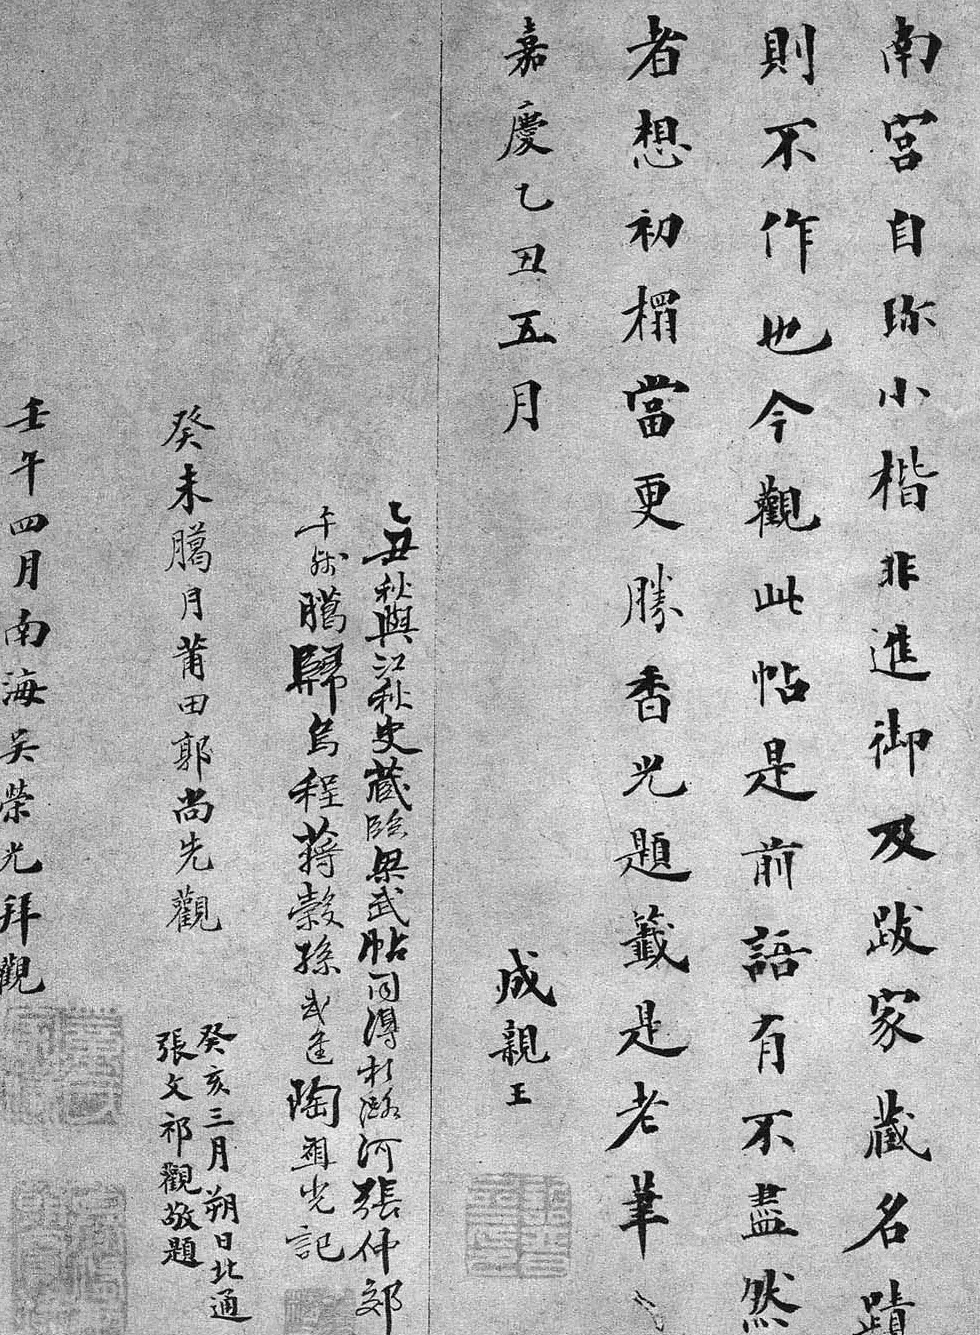 南宮自珎小楷非進御及跋家藏名蹟
則不作也今觀此帖是前語有不盡然
者想初榻當更勝香光題籤是老筆
嘉慶乙丑五月
成親王
乙丑秋與江秋史藏臨梁武帖同得於潞河張仲郊
歸烏程蔣穀孫武進陶祖光記
癸未臈月莆田郭尚先觀
癸亥三月朔日北通
張文祁觀敬題
壬午四月南海吴榮光拜觀